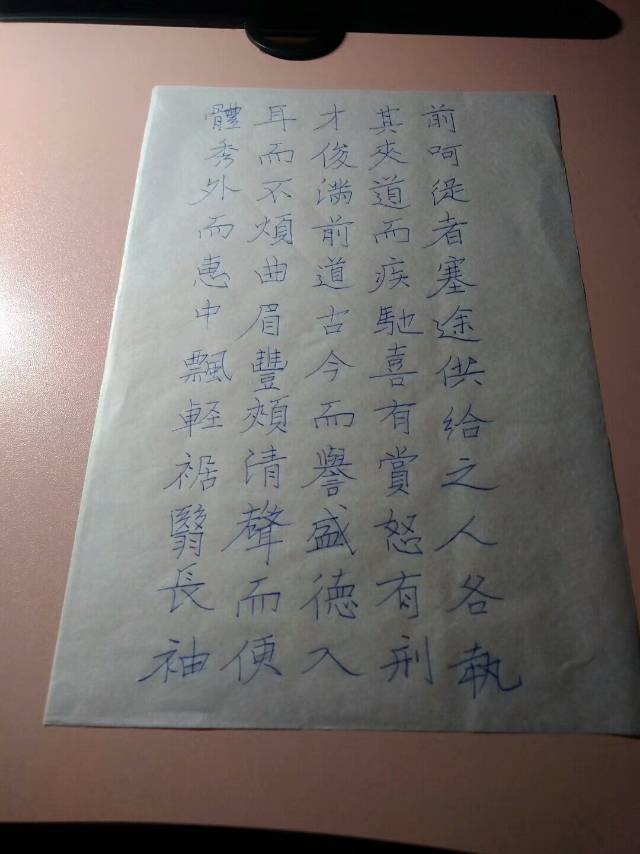 前呵從者塞途供给之人各執
其夾道而疾馳喜有賞怒有刑
才俊满前道古今而譽盛德入
耳而不煩曲眉豐頰清聲而便
體秀外而惠中飄軽裾翳長袖